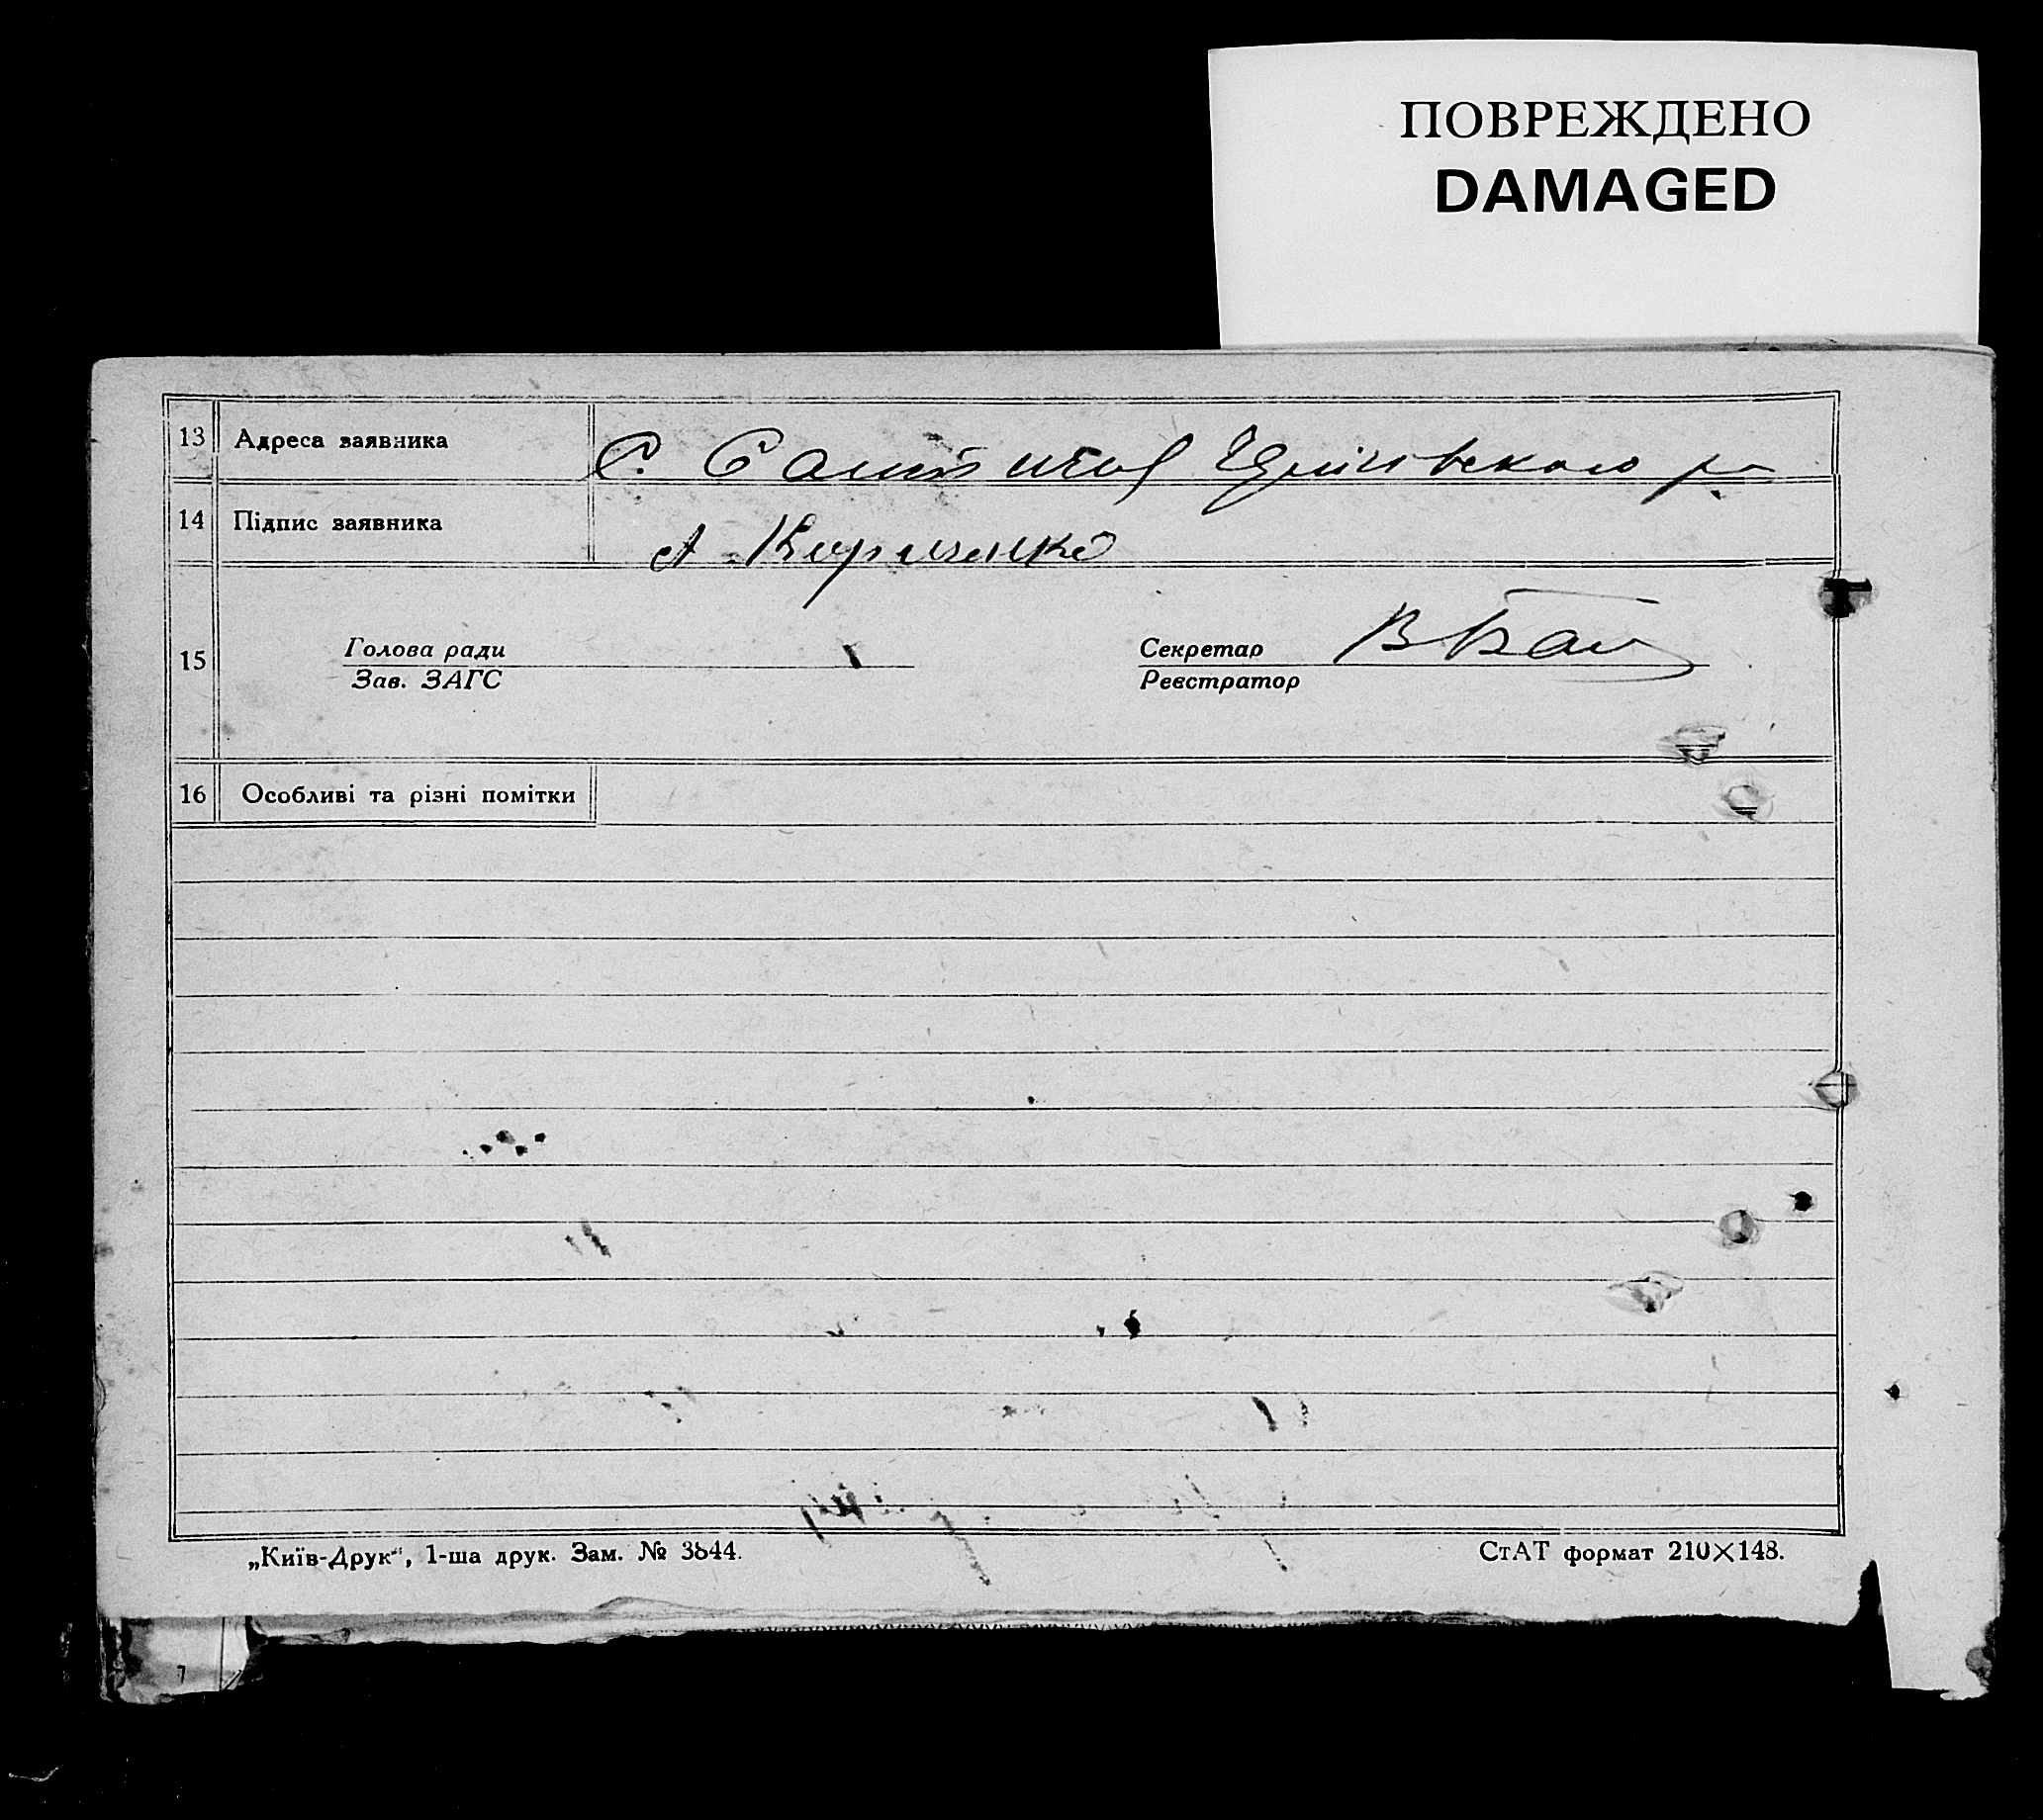 ПОВРЕЖДЕНО
DAMAGED
13 Адреса заявника С.
14 Підпис заявника А. Кириченко
15 Голова ради Секретар
Зав. ЗАГС Реєстратор
16 Особливі та різні помітки
„Київ-Друк“, 1-ша друк. Зам. № 3844. СтАТ формат 210×148.